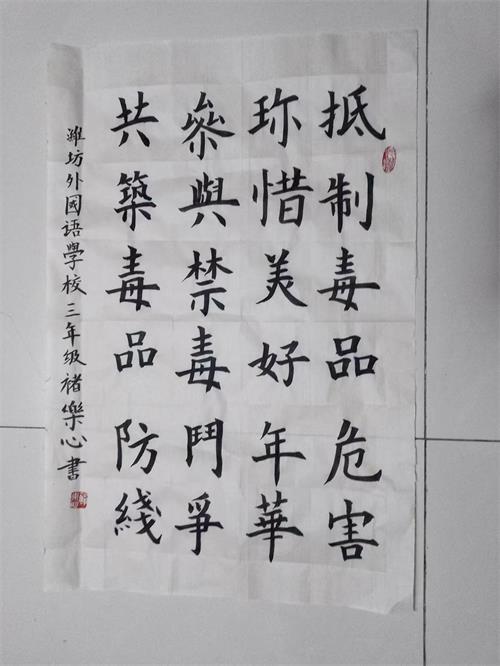 抵制毒品危害
珎惜美好年華
參與禁毒鬥爭
共築毒品防綫
濰坊外國语學校三年级褚樂心書